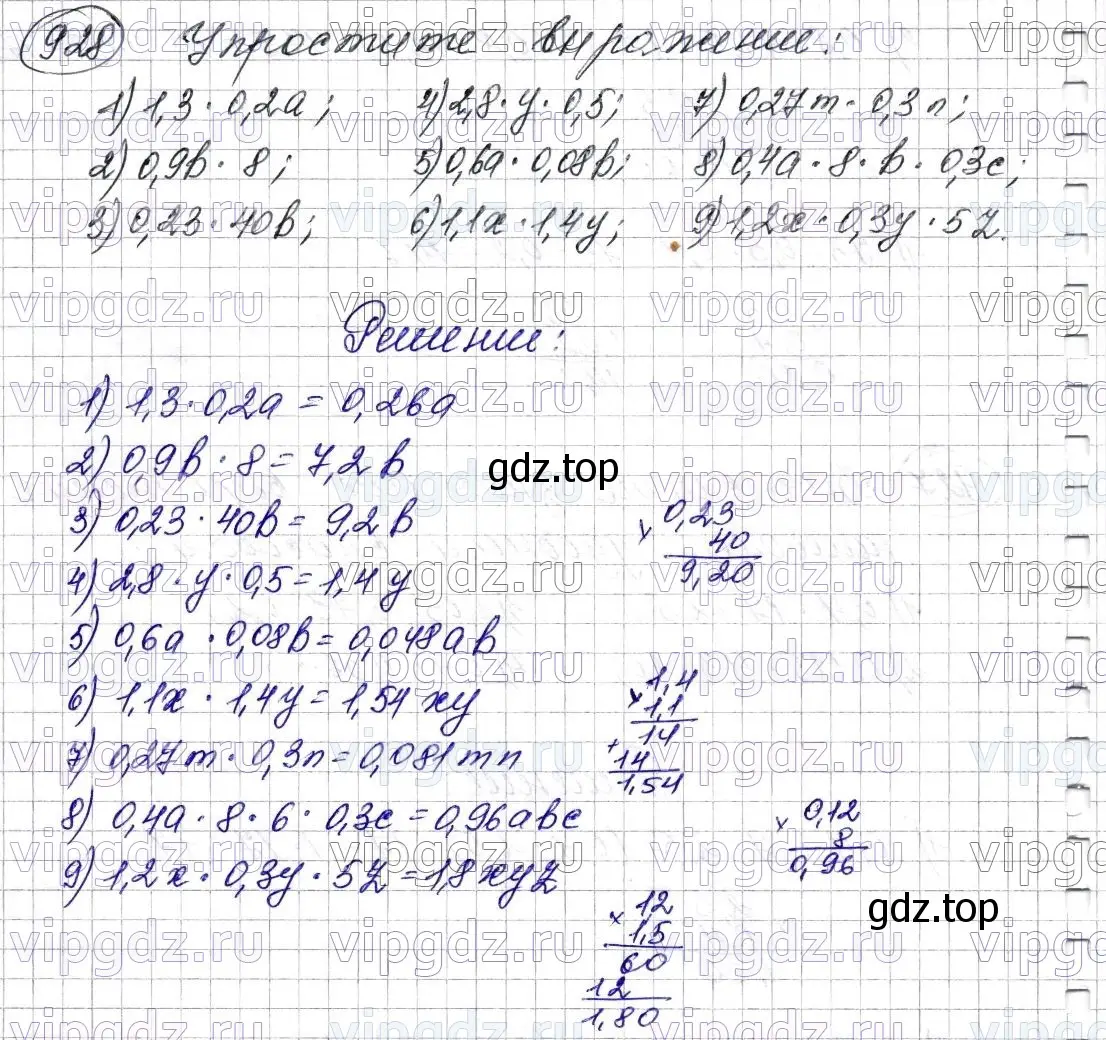 928 Упростите выражении:
1) 1,3 · 0,2a; 4) 2,8 · y · 0,5; 7) 0,27m · 0,3n;
2) 0,9b · 8; 5) 0,6a · 0,08b; 8) 0,4a · 8 · b · 0,3c;
3) 0,23 · 40b; 6) 1,1x · 1,4y; 9) 1,2x · 0,3y · 5z.
Решении:
1) 1,3 · 0,2a = 0,26a
2) 0,9b · 8 = 7,2b
gdz.top
3) 0,23 · 40b = 9,2b
× 0,23
40
9,20
4) 2,8 · y · 0,5 = 1,4y
5) 0,6a · 0,08b = 0,048ab
6) 1,1x · 1,4y = 1,54xy
× 1,4
1,1
14
+ 14
1,54
7) 0,27m · 0,3n = 0,081mn
8) 0,4a · 8 · 6 · 0,3c = 0,96abc
× 0,12
8
0,96
9) 1,2x · 0,3y · 5z = 1,8xyz
× 12
1,5
60
12
1,80
gdz.top
vipgdz.ru